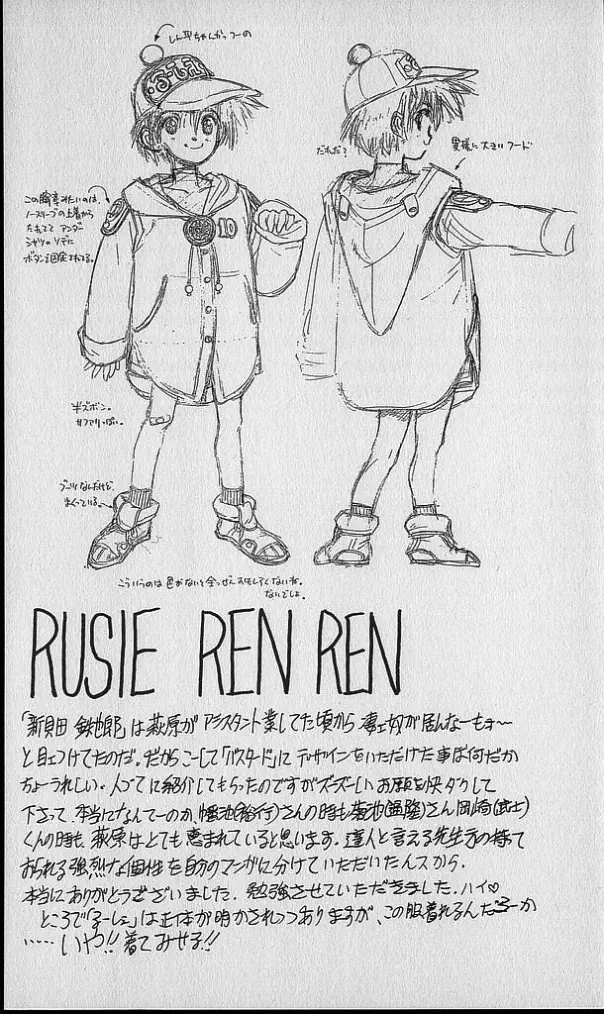 しん平ちゃんがっつーの
るーしぇ
だれだ?
異様に大きいフード
この腕章みたいのは、
ノースリーブの上着から
たれてて アンダー
シャツのソデに
ボタンで固定されてる。
10
半ズボン。
ブーツなんだけど、
まくっている。
こういうのは色がないと全っぜんおもしろくないが。
ないでしょ。
RUSIE REN REN
「新貝田 鉄也郎」は萩原がアシスタント業してた頃から 凄ェ奴が居んなーもォ〜
と目ェつけてたのだ。だからこーして「バスタード」にデザインをいただけた事は何だか
ちょーうれしい。人づてに紹介してもらったのですがズーズーしいお願を快ダクして
下さって、本当になんてーのか、幡池(裕行)さんの時も菊池(通隆)さん岡崎(武士)
くんの時も、萩原はとても恵まれていると思います。達人と言える先生方の持って
おられる強烈な個性を自分のマンガに分けていただいたんスから。
本当にありがとうございました。勉強させていただきました。ハイ♡
ところで「るーしぇ」は正体が明かされつつありますが、この服着れるんだろーか
……いや!!着てみせる!!